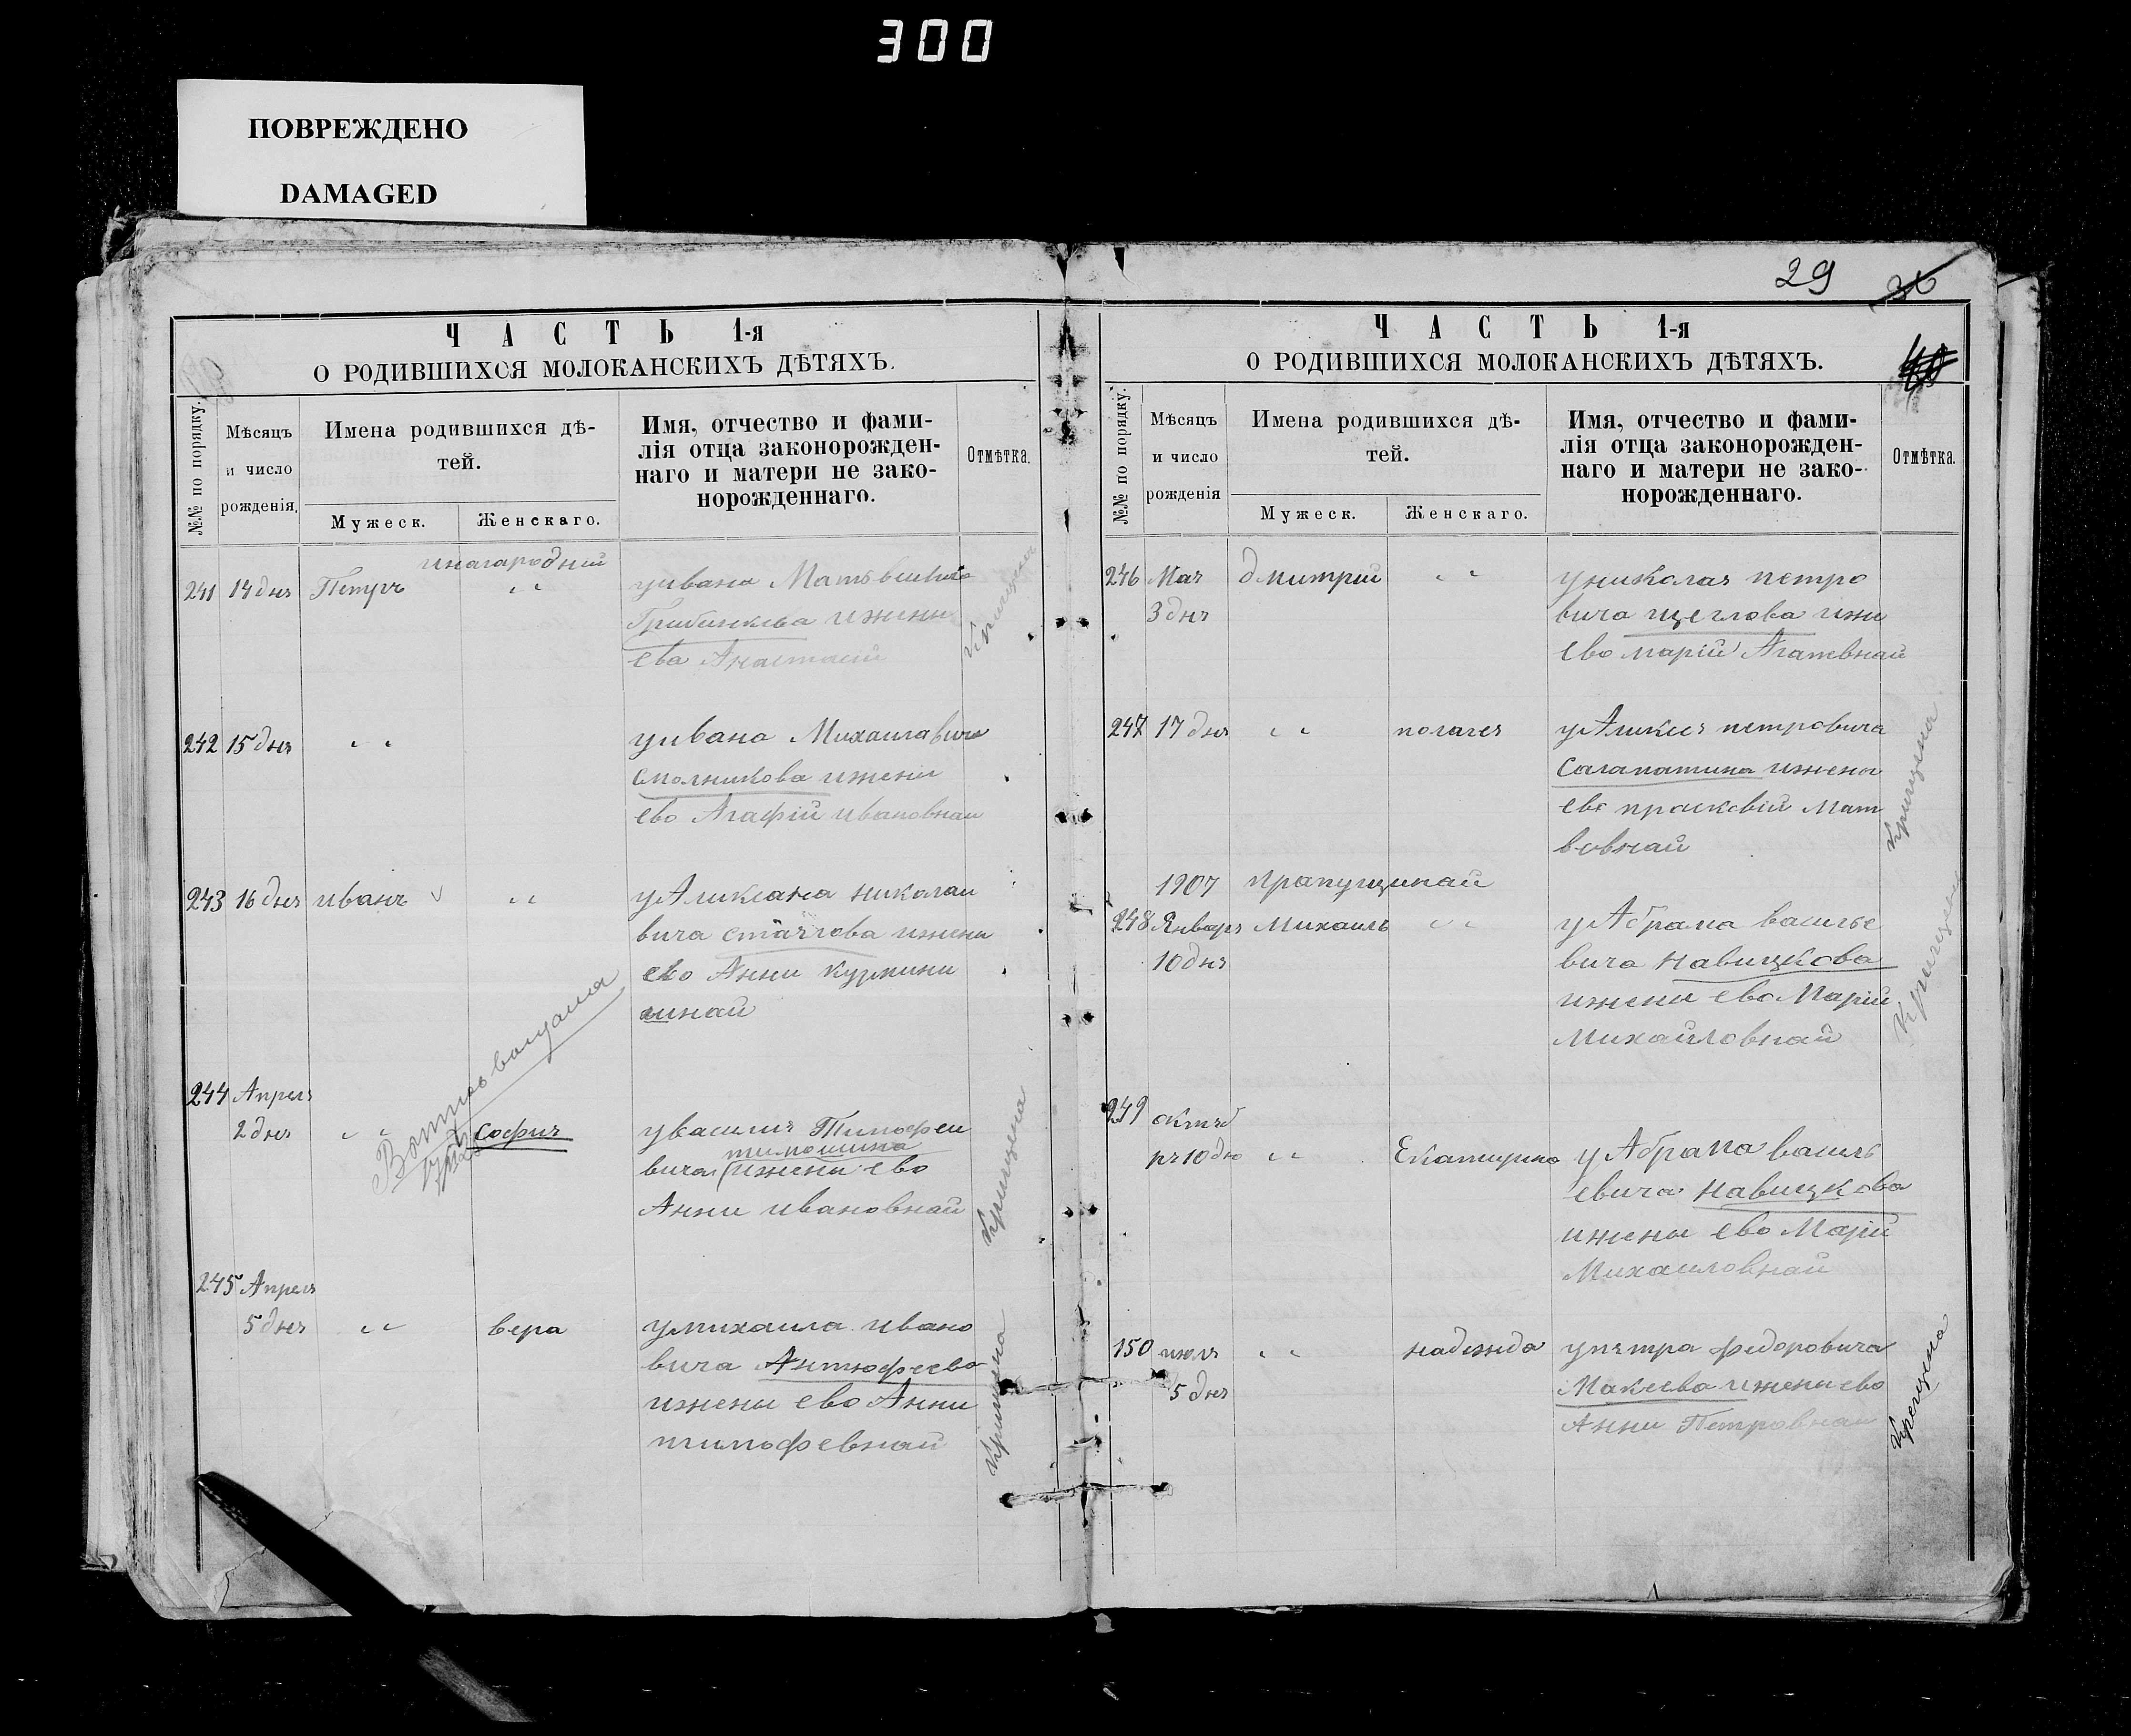 300
ПОВРЕЖДЕНО
DAMAGED
ЧАСТЬ 1-я
О РОДИВШИХСЯ МОЛОКАНСКИХЪ ДѢТЯХЪ.
№№ по порядку.
Мѣсяцъ и число рожденія.
Имена родившихся дѣ-
тей.
Мужеск.
Женскаго.
Имя, отчество и фами-
лія отца законорожден-
наго и матери не зако-
норожденнаго.
Отмѣтка.
инагародний
241 14 дня Петръ " уивана Матьвеивича
Грибинкева ижени
ева Анастасій
242 15 дня " уивана Михаилавича
смолникова ижени
ево Агафій ивановнаи
243 16 дня иванъ v " уАликсана николаи
вича ижени
ево Анни
244 Апреля
2 дня " софия увасилия Тимофеи
тимошина
вича ижени ево
Анни ивановнай
крищена
245 Апреля
5 дня " вера умихаила ивано
вича Антюфеева
ижены ево Анни
тимофевнай
крищена
29 30
40
ЧАСТЬ 1-я
О РОДИВШИХСЯ МОЛОКАНСКИХЪ ДѢТЯХЪ.
№№ по порядку.
Мѣсяцъ и число рожденія
Имена родившихся дѣ-
тей.
Мужеск.
Женскаго.
Имя, отчество и фами-
лія отца законорожден-
наго и матери не зако-
норожденнаго.
Отмѣтка.
246 Мая дмитрий " униколая петро
3 дня вича щеглова ижи
ево марій Агатевнай
247 17 дня " пелагея уАликия петровича
Салапатина ижены
ево прасковій Мат
вевнай
крищена
1907 прапущинай
248 Январь Михаилъ " уАбрама василье
10 дня вича Навищкова
ижени ево Марій
Михайловнай
крищен
249 октяб
ря 10 дню " Екатирина уАбрама василь
евича навищкова
ижены ево Марій
Михаиловнай
150 июля " надежда упетра федоровича
5 дня Макеева ижены ево
Анни Петровнаи
крещена